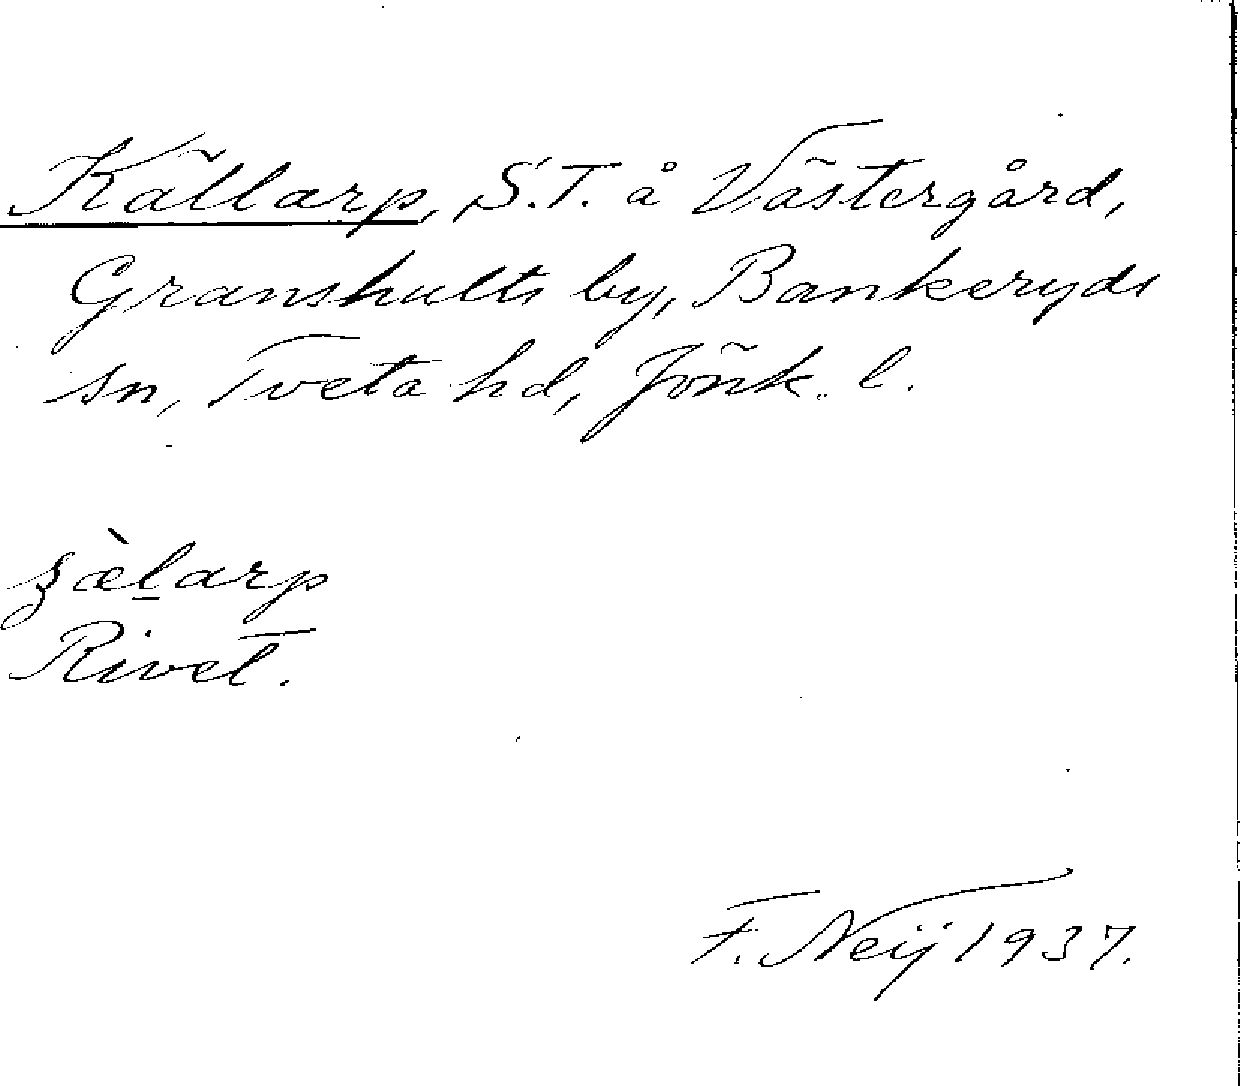 Källarp, S.T. å Västergård,
Granshults by, Bankeryds
sn, Tveta hd, Jönk. l.
ʒæ̀l̲arp
Rivet.
F. Neij 1937.